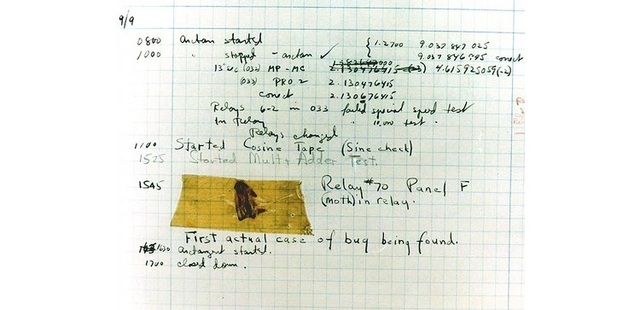 9/9
0800 Antan started
1000 " stopped - antan ✓ { 1.2700 9.037 847 025
9.037 846 995 correct
13" uc (032) MP - MC 2.130476415 (-3) 4.615925059(-2)
(033) PRO 2 2.130476415
correct 2.130676415
Relays 6-2 in 033 failed special speed test
in relay " 10.000 test.
Relays changed
1100 Started Cosine Tape (Sine check)
1525 Started Mult + Adder Test.
1545 Relay #70 Panel F
(moth) in relay.
First actual case of bug being found.
1630 antangent started.
1700 closed down.